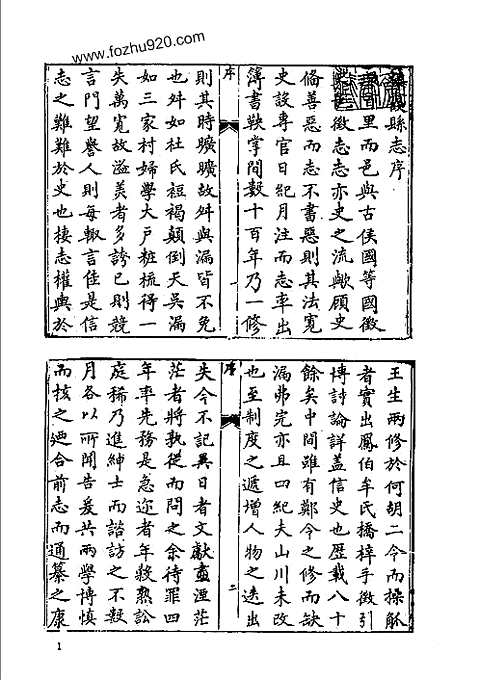 www.fozhu920.com
縣志序
里而邑與古侯國等國徵
徵志志亦史之流歟顧史
脩善惡而志不書惡則其法寬
史設專官日紀月注而志率出
簿書鞅掌間數十百年乃一修
序
則其時曠曠故舛與漏皆不免
也舛如杜氏短褐顛倒天吳漏
如三家村婦學大戶粧梳得一
失萬寃故溢美者多誇已則競
言門望譽人則每輙言佳是信
志之難難於史也棲志權輿於
王生兩修於何胡二令而操觚
者實出鳳伯牟氏橋梓手徵引
博討論詳蓋信史也歷載八十
餘矣中間雖有鄭令之修而缺
漏弗完亦且四紀夫山川未改
也至制度之遞增人物之迭出
序
二
失今不記異日者文獻盡湮茫
茫者將孰從而問之余待罪四
年率先務是急迩者年穀熟訟
庭稀乃進紳士而諮訪之不數
月各以所聞告爰共兩學博慎
而核之迺合前志而通纂之康
1